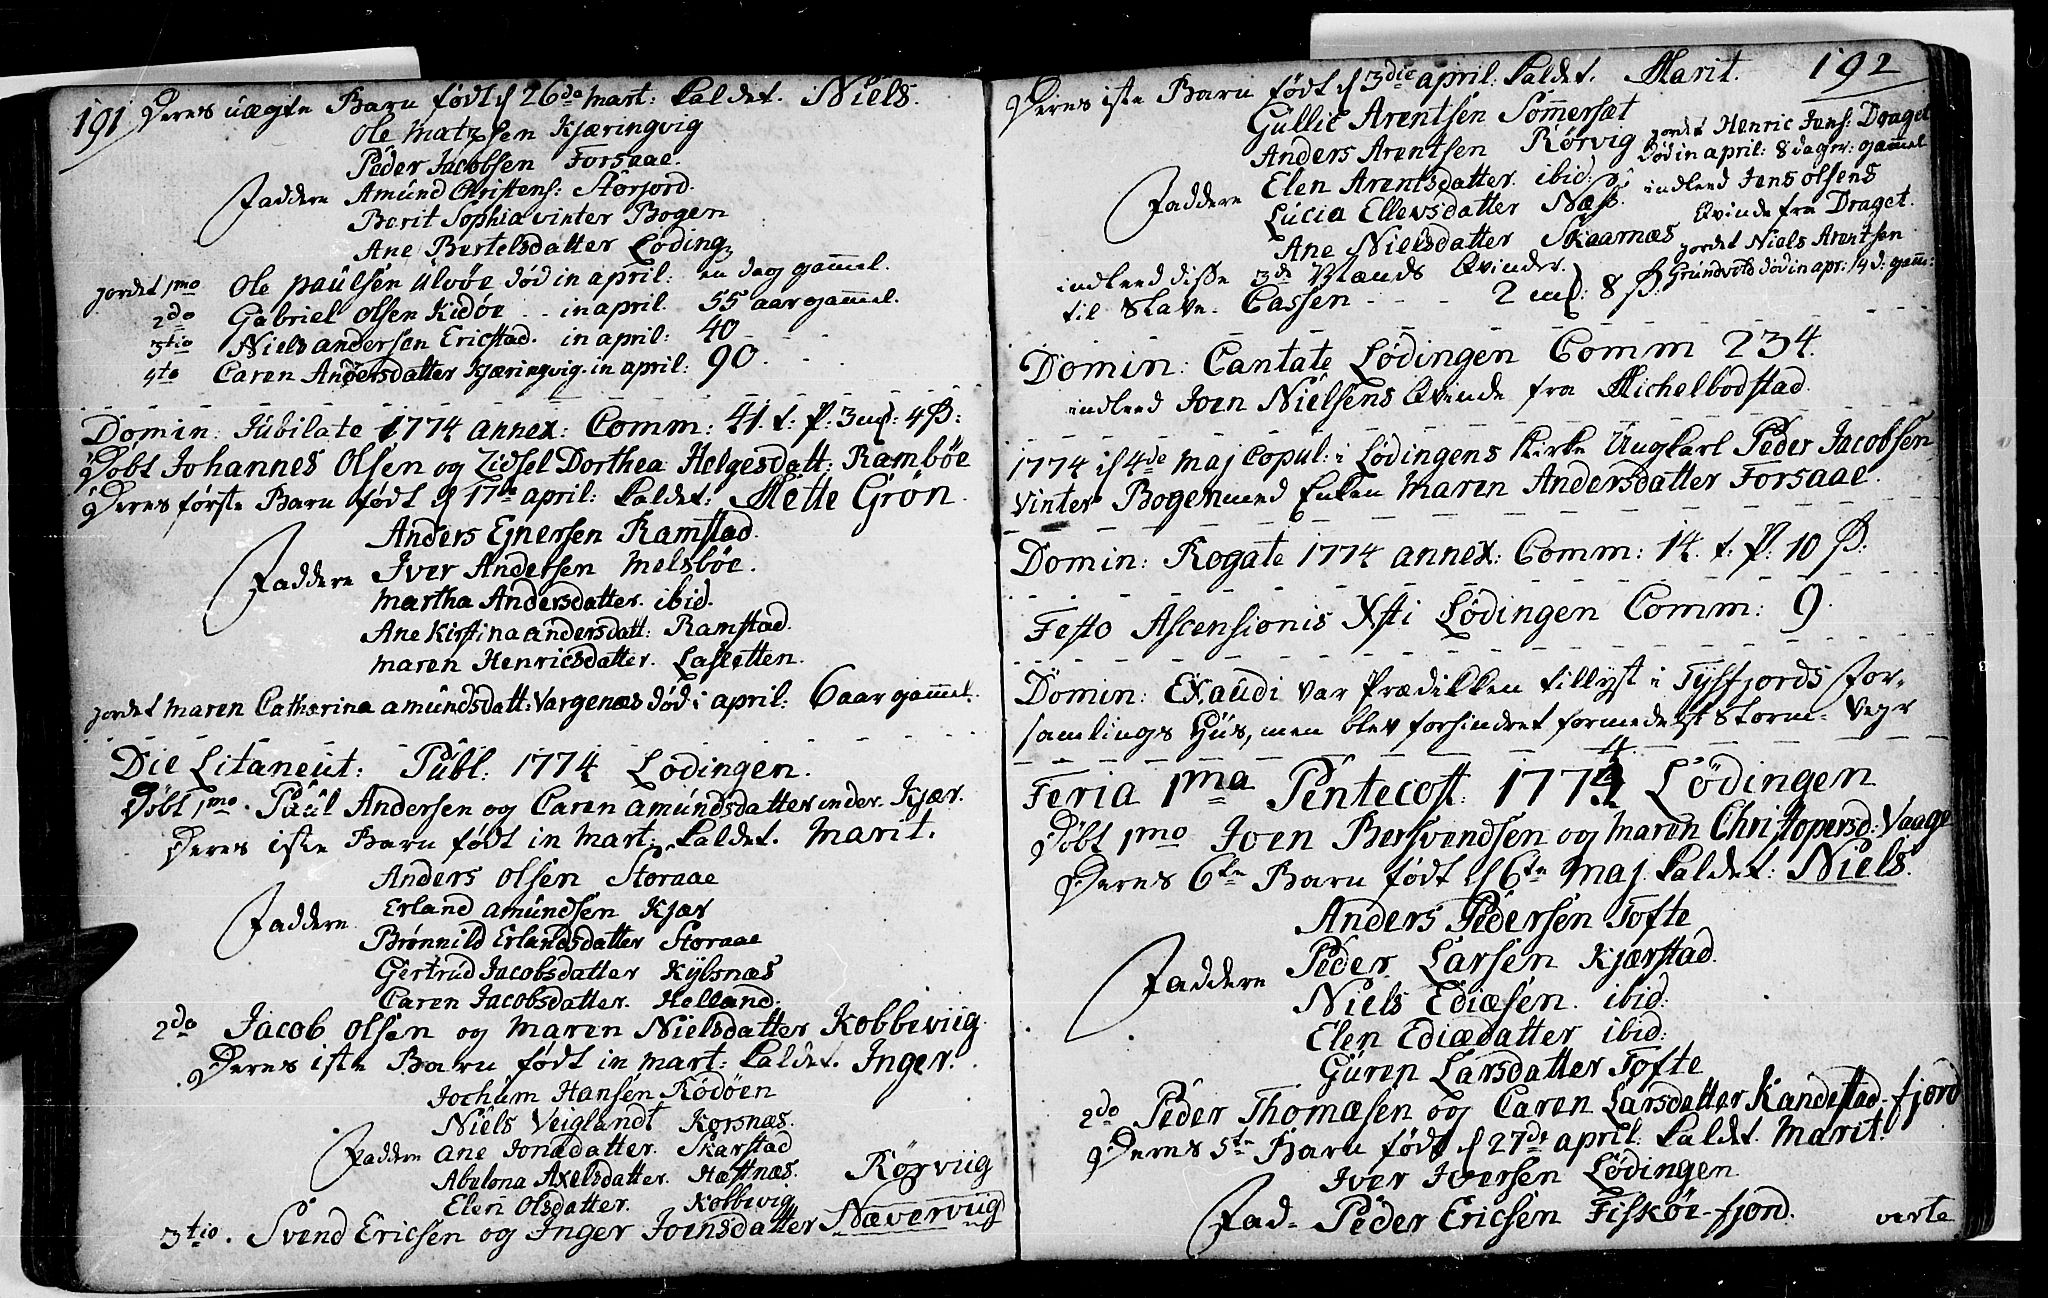 191
Deres uægte Barn født d 26de Mart: kaldet. Niels.
Ole Matzsen Kjæringvig
Peder Jacobsen Forsaae.
Faddere Amund Christens: Storjord.
Berit Sophia Vinter Bogen
Ane Bertelsdatter Løding
jordet 1mo Ole Paulsen Ulvøe død in april: en dag gammel.
2do Gabriel Olsen Kidøe - - in april. 55 aar gammel.
3tio Niels Andersen Ericstad. in april: 40 - - -
4to Caren Andersdatter Kjæringvig. in april: 90 - - -
Domin: Jubilate 1774 annex: Comm: 41. t: P. 3 mk: 4 β:
Døbt Johannes Olsen og Zidsel Dorthea Helgesdatt: Rambøe
Deres første Barn født d 17de april: kaldet: Mette Grøn.
Anders Ejnersen Ramstad.
Faddere Iver Andersen Melsbøe.
Martha Andersdatter. ibid.
Ane Kirstina Andersdatt: Ramstad.
Maren Henricsdatter. Lasletten.
jordet Maren Catharina Amundsdatt: Vargenæs død i april: 6 aar gammel.
Die Litaneut: Publ: 1774 Lødingen.
Døbt 1mo. Paul Andersen og Caren Amundsdatter inder-Kjær.
Deres 1ste Barn født in Mart: kaldet. Marit.
Anders Olsen Storaae
Faddere Erland Amundsen Kjær
Brønnild Erlandsdatter Storaae
Gertrud Jacobsdatter Kylsnæs
Caren Jacobsdatter. Helland.
2do Jacob Olsen og Maren Nielsdatter Kobbeviig.
Deres 1ste Barn født in Mart: kaldet. Inger.
Jochum Hansen Rødøen
Niels Veiglandt Korsnæs.
Faddere Ane Jonædatter. Skarstad
Abelona Axelsdatter. Hæstnæs.
Elen Olsdatter. Kobbevig
Rørviig
3tio. Svend Ericsen og Inger Joensdatter Næverviig
192
Deres 1ste Barn født d 3die april: kaldet. Marit.
Gullic Arentsen Sommersæt
Anders Arentsen Rørvig
Faddere Elen Arentsdatter. ibid:
Lucia Ellevsdatter Næss.
Ane Nielsdatter Skaarnæs
jordet Henric Jens: Draget
død in april: 8 dager: gammel
indleed Jens Olsens
Qvinde fra Draget.
jordet Niels Arentsen
Grundvold død in apr: 14 d: gam:
indleed disse 3de Mænds Qvinder.
til Slave-Cassen - - - 2 mk: 8 β:
Domin: Cantate Lødingen Comm 234.
indleed Joen Nielsens Qvinde fra Michelbodstad.
1774 d 4de Maj Copul: i Lødingens Kirke Ungkarl Peder Jacobsen
Vinter Bogen med Enken Maren Andersdatter Forsaae.
Domin: Rogate 1774 annex: Comm: 14. t: P: 10 β:
Festo Ascensionis Xsti Lødingen Comm: 9.
Domin: Exaudi var Prædikken tillyst i Tysfjords For-
samlings Huus, men blev forhindret formedelst Storm-Vejr
Feria 1ma Pentecost: 1774 Lødingen
Døbt 1mo Joen Bersvendsen og Maren Christopersd: Vaage
Deres 6te Barn født d 6te Maj kaldet: Niels.
Anders Pedersen Tofte
Faddere Peder Larsen Kjærstad.
Niels Ediæsen. ibid:
Elen Ediædatter ibid:
Guren Larsdatter Tofte
2do Peder Thomæsen og Caren Larsdatter Kandestad-fjord
Deres 5te Barn født d 27de april: kaldet. Marit.
Iver Iversen Lødingen
Fad- Peder Ericsen Fiskøe-fjord.
verte